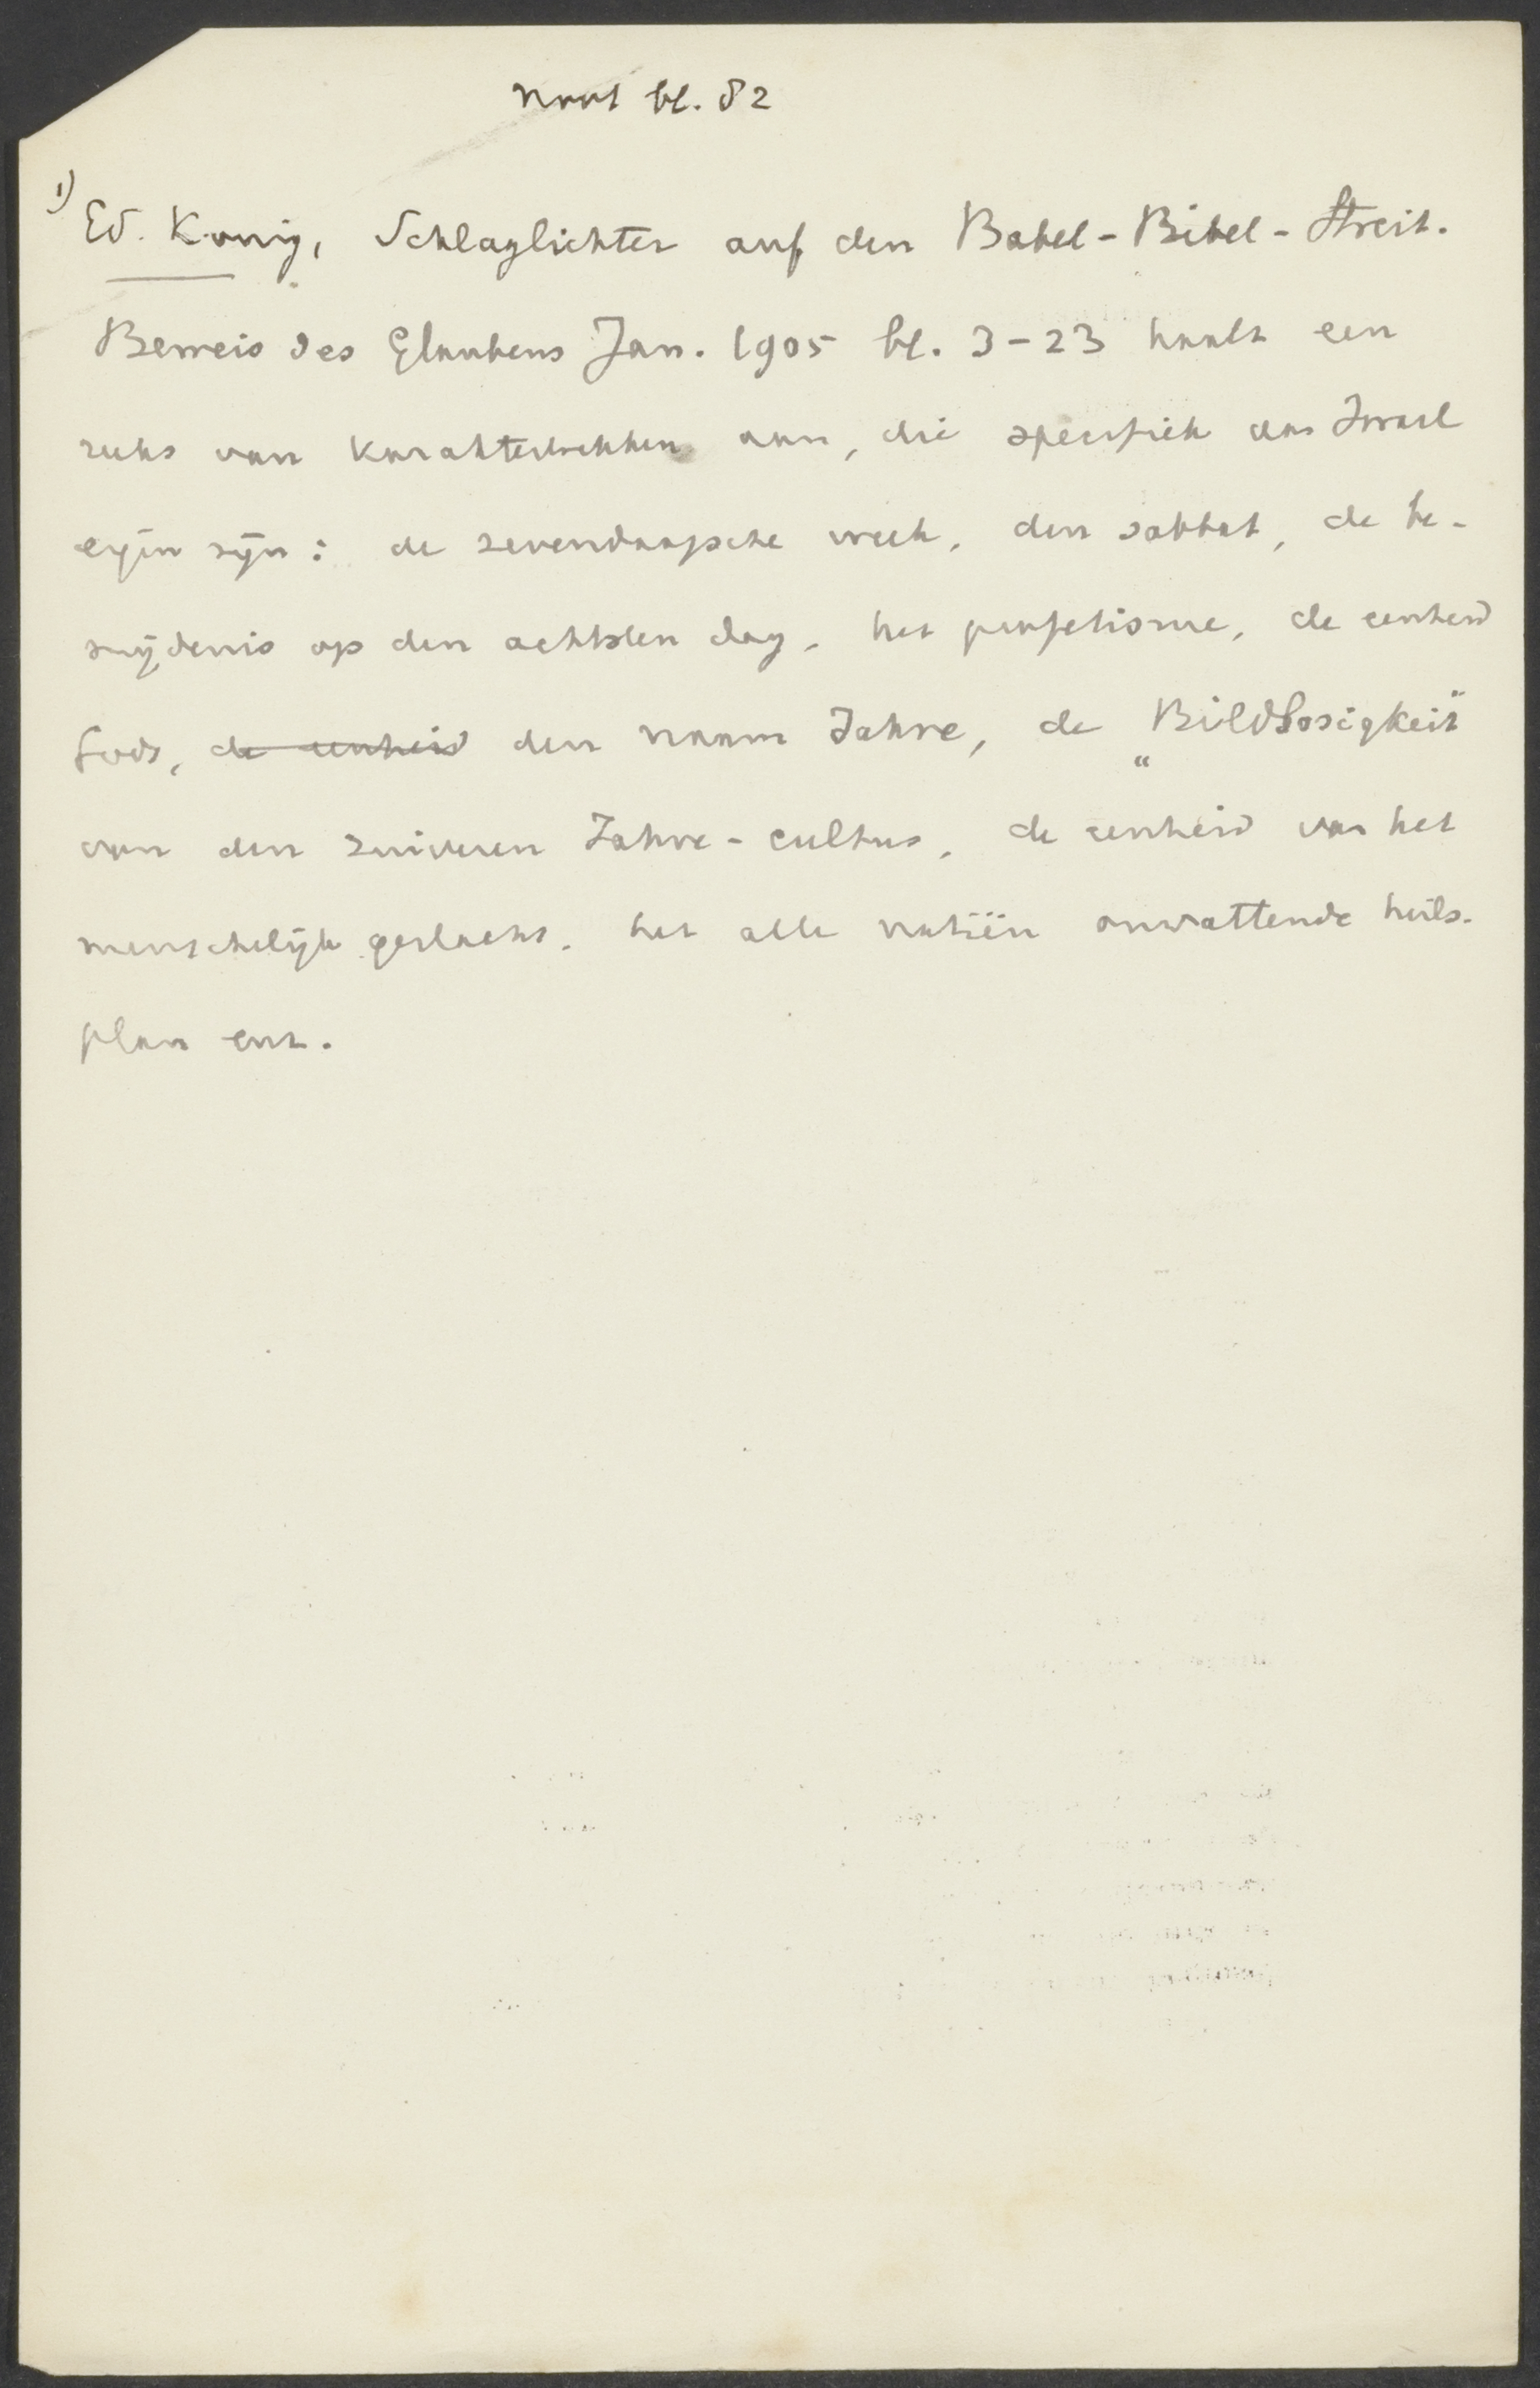 Noot bl. 82
1) Ed. König, Schlaglichter auf den Babel-Bibel-Streit.
Beweis des Glaubens Jan. 1905 bl. 3-23 haalt een
reeks van karaktertrekken aan, die specifiek aan Israel
eigen zijn: de zevendaagsche week, den sabbat, de be-
snijdenis op den achtsten dag, het profetisme, de eenheid
Gods, de eenheid den naam Jahve, de „Bildlosigkeit"
van den zuiveren Jahve-cultus, de eenheid van het
menschelijk geslacht, het alle natiën omvattende heils-
plan enz.